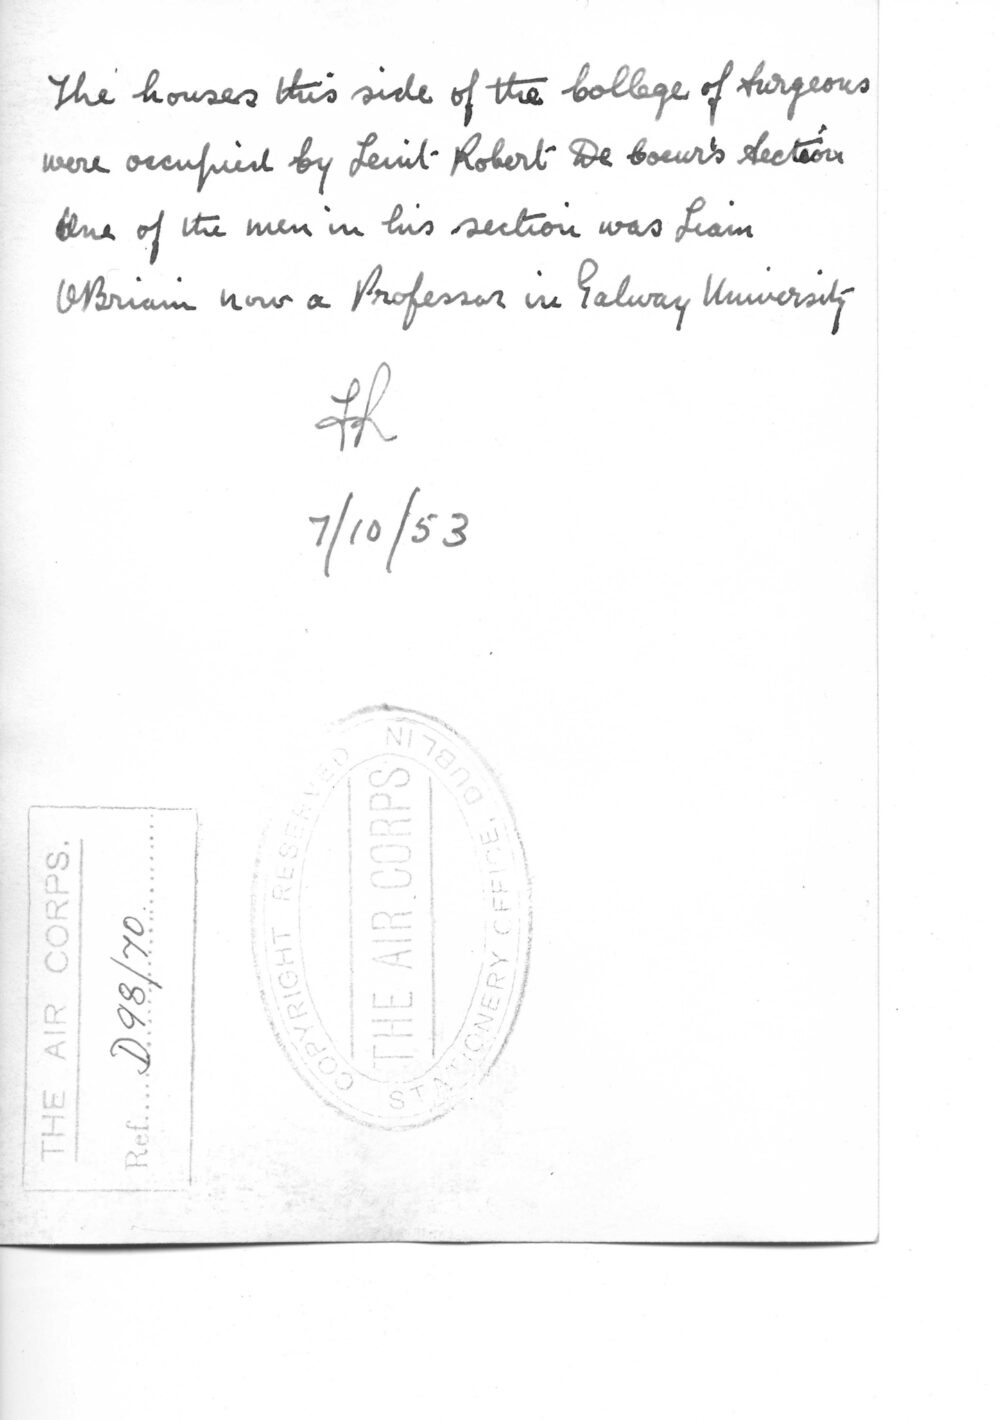 The houses this side of the College of Surgeons
were occupied by Leuit Robert De Coeur's Section
One of the men in his section was Liam
O'Briain now a Professor in Galway University
7/10/53
THE AIR CORPS.
Ref....D98/70
COPYRIGHT RESERVED
THE AIR CORPS
STATIONERY OFFICE, DUBLIN